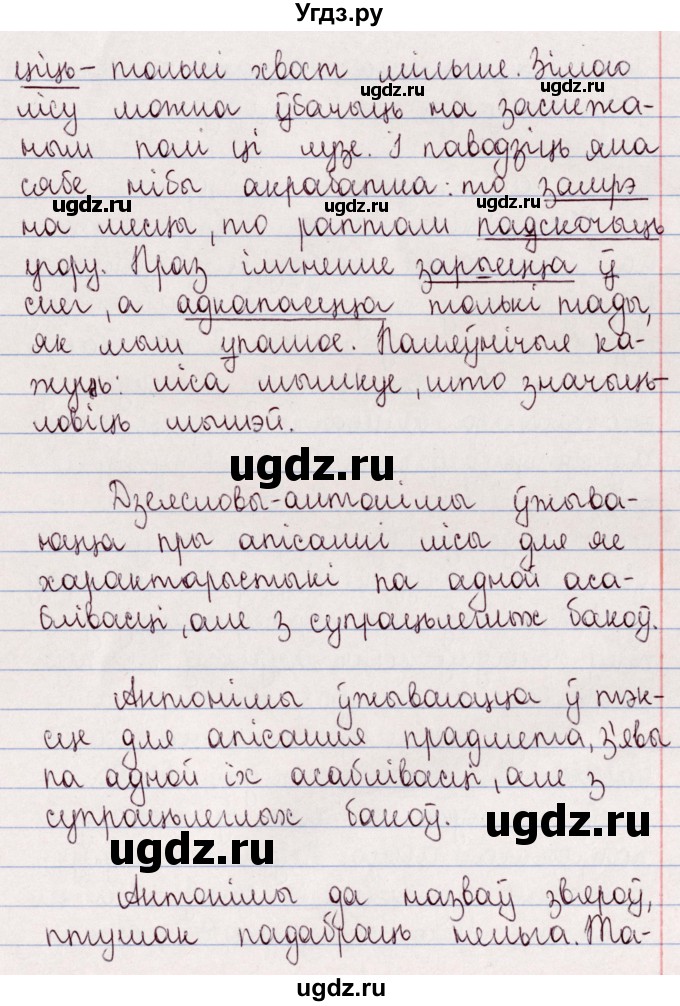 Угдз.ру
ціць – толькі хвост мільгне. Зімою
лісу можна ўбачыць на заснежа-
ным полі ці лузе. І паводзіць яна
сябе нібы акрабатка: то замрэ
на месцы, то раптам падскочыць
угору. Праз імгненне зарыецца ў
снег, а адкапаецца толькі тады,
як мыш упалюе. Паляўнічыя ка-
жуць: ліса мышкуе, што значыць
ловіць мышэй.
ugdz.ru
Дзеясловы-антонімы ўжыва-
юцца пры апісанні лісы для яе
характарыстыкі па адной аса-
блівасці, але з супрацьлеглых бакоў.
Антонімы ўжываюцца ў тэк-
сце для апісання прадмета, з'явы
па адной іх асаблівасці, але з
супрацьлеглых бакоў. ugdz.ru
ugdz.ru
Антонімы да назваў звяроў,
птушак падабраць нельга. Та-
ugdz.ru
ugdz.ru
ugdz.ru
ugdz.ru
ugdz.ru
ugdz.ru
ugdz.ru